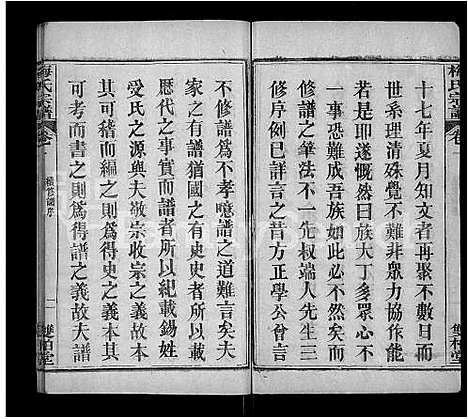 梅氏宗譜
卷一
雙桂堂
十七年夏月知文者再聚不數日
世系理清殊覺不難非眾力協作
若是即遂慨然曰族大丁多眾心不
一事恐難成吾族如此其無不可
修譜之筆法不一先叔端人先生三
修序例已詳言之昔方正學公曾言
不修譜為不孝噫譜之道難言矣夫
家之有譜猶國之有史史者所以紀
歷代之事實而譜者所以載錫姓
受氏之源與夫敬宗收宗之義也本
其可稽而編之則為得史之義本其
可考而書之則為得譜之義故夫譜
梅氏宗譜
卷一
續修譜序
二